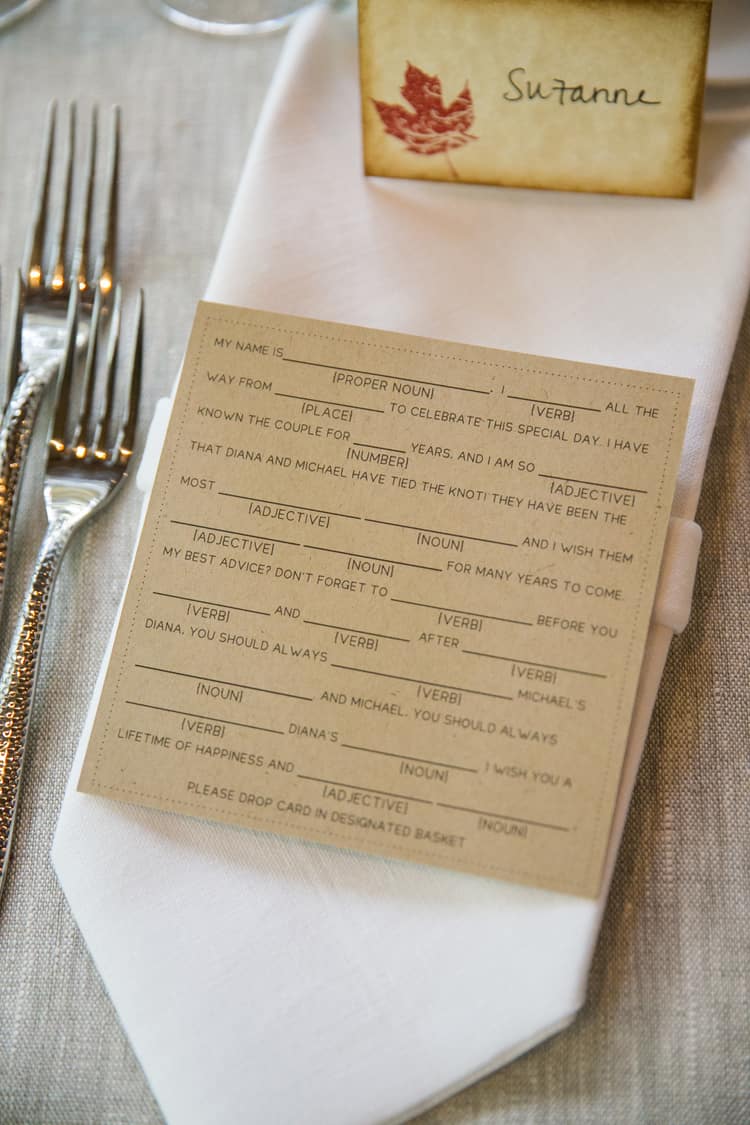 Suzanne
MY NAME IS ____________. I ________ ALL THE
{PROPER NOUN} {VERB}
WAY FROM ________ TO CELEBRATE THIS SPECIAL DAY. I HAVE
{PLACE}
KNOWN THE COUPLE FOR ____ YEARS, AND I AM SO ________
{NUMBER} {ADJECTIVE}
THAT DIANA AND MICHAEL HAVE TIED THE KNOT! THEY HAVE BEEN THE
MOST ____________ ____________ AND I WISH THEM
{ADJECTIVE} {NOUN}
____________ ____________ FOR MANY YEARS TO COME.
{ADJECTIVE} {NOUN}
MY BEST ADVICE? DON'T FORGET TO ____________ BEFORE YOU
{VERB}
____________ AND ____________ AFTER ____________.
{VERB} {VERB} {VERB}
DIANA, YOU SHOULD ALWAYS ____________ MICHAEL'S
{VERB}
____________ AND MICHAEL, YOU SHOULD ALWAYS
{NOUN}
____________ DIANA'S ____________. I WISH YOU A
{VERB} {NOUN}
LIFETIME OF HAPPINESS AND ____________ ____________.
{ADJECTIVE} {NOUN}
PLEASE DROP CARD IN DESIGNATED BASKET